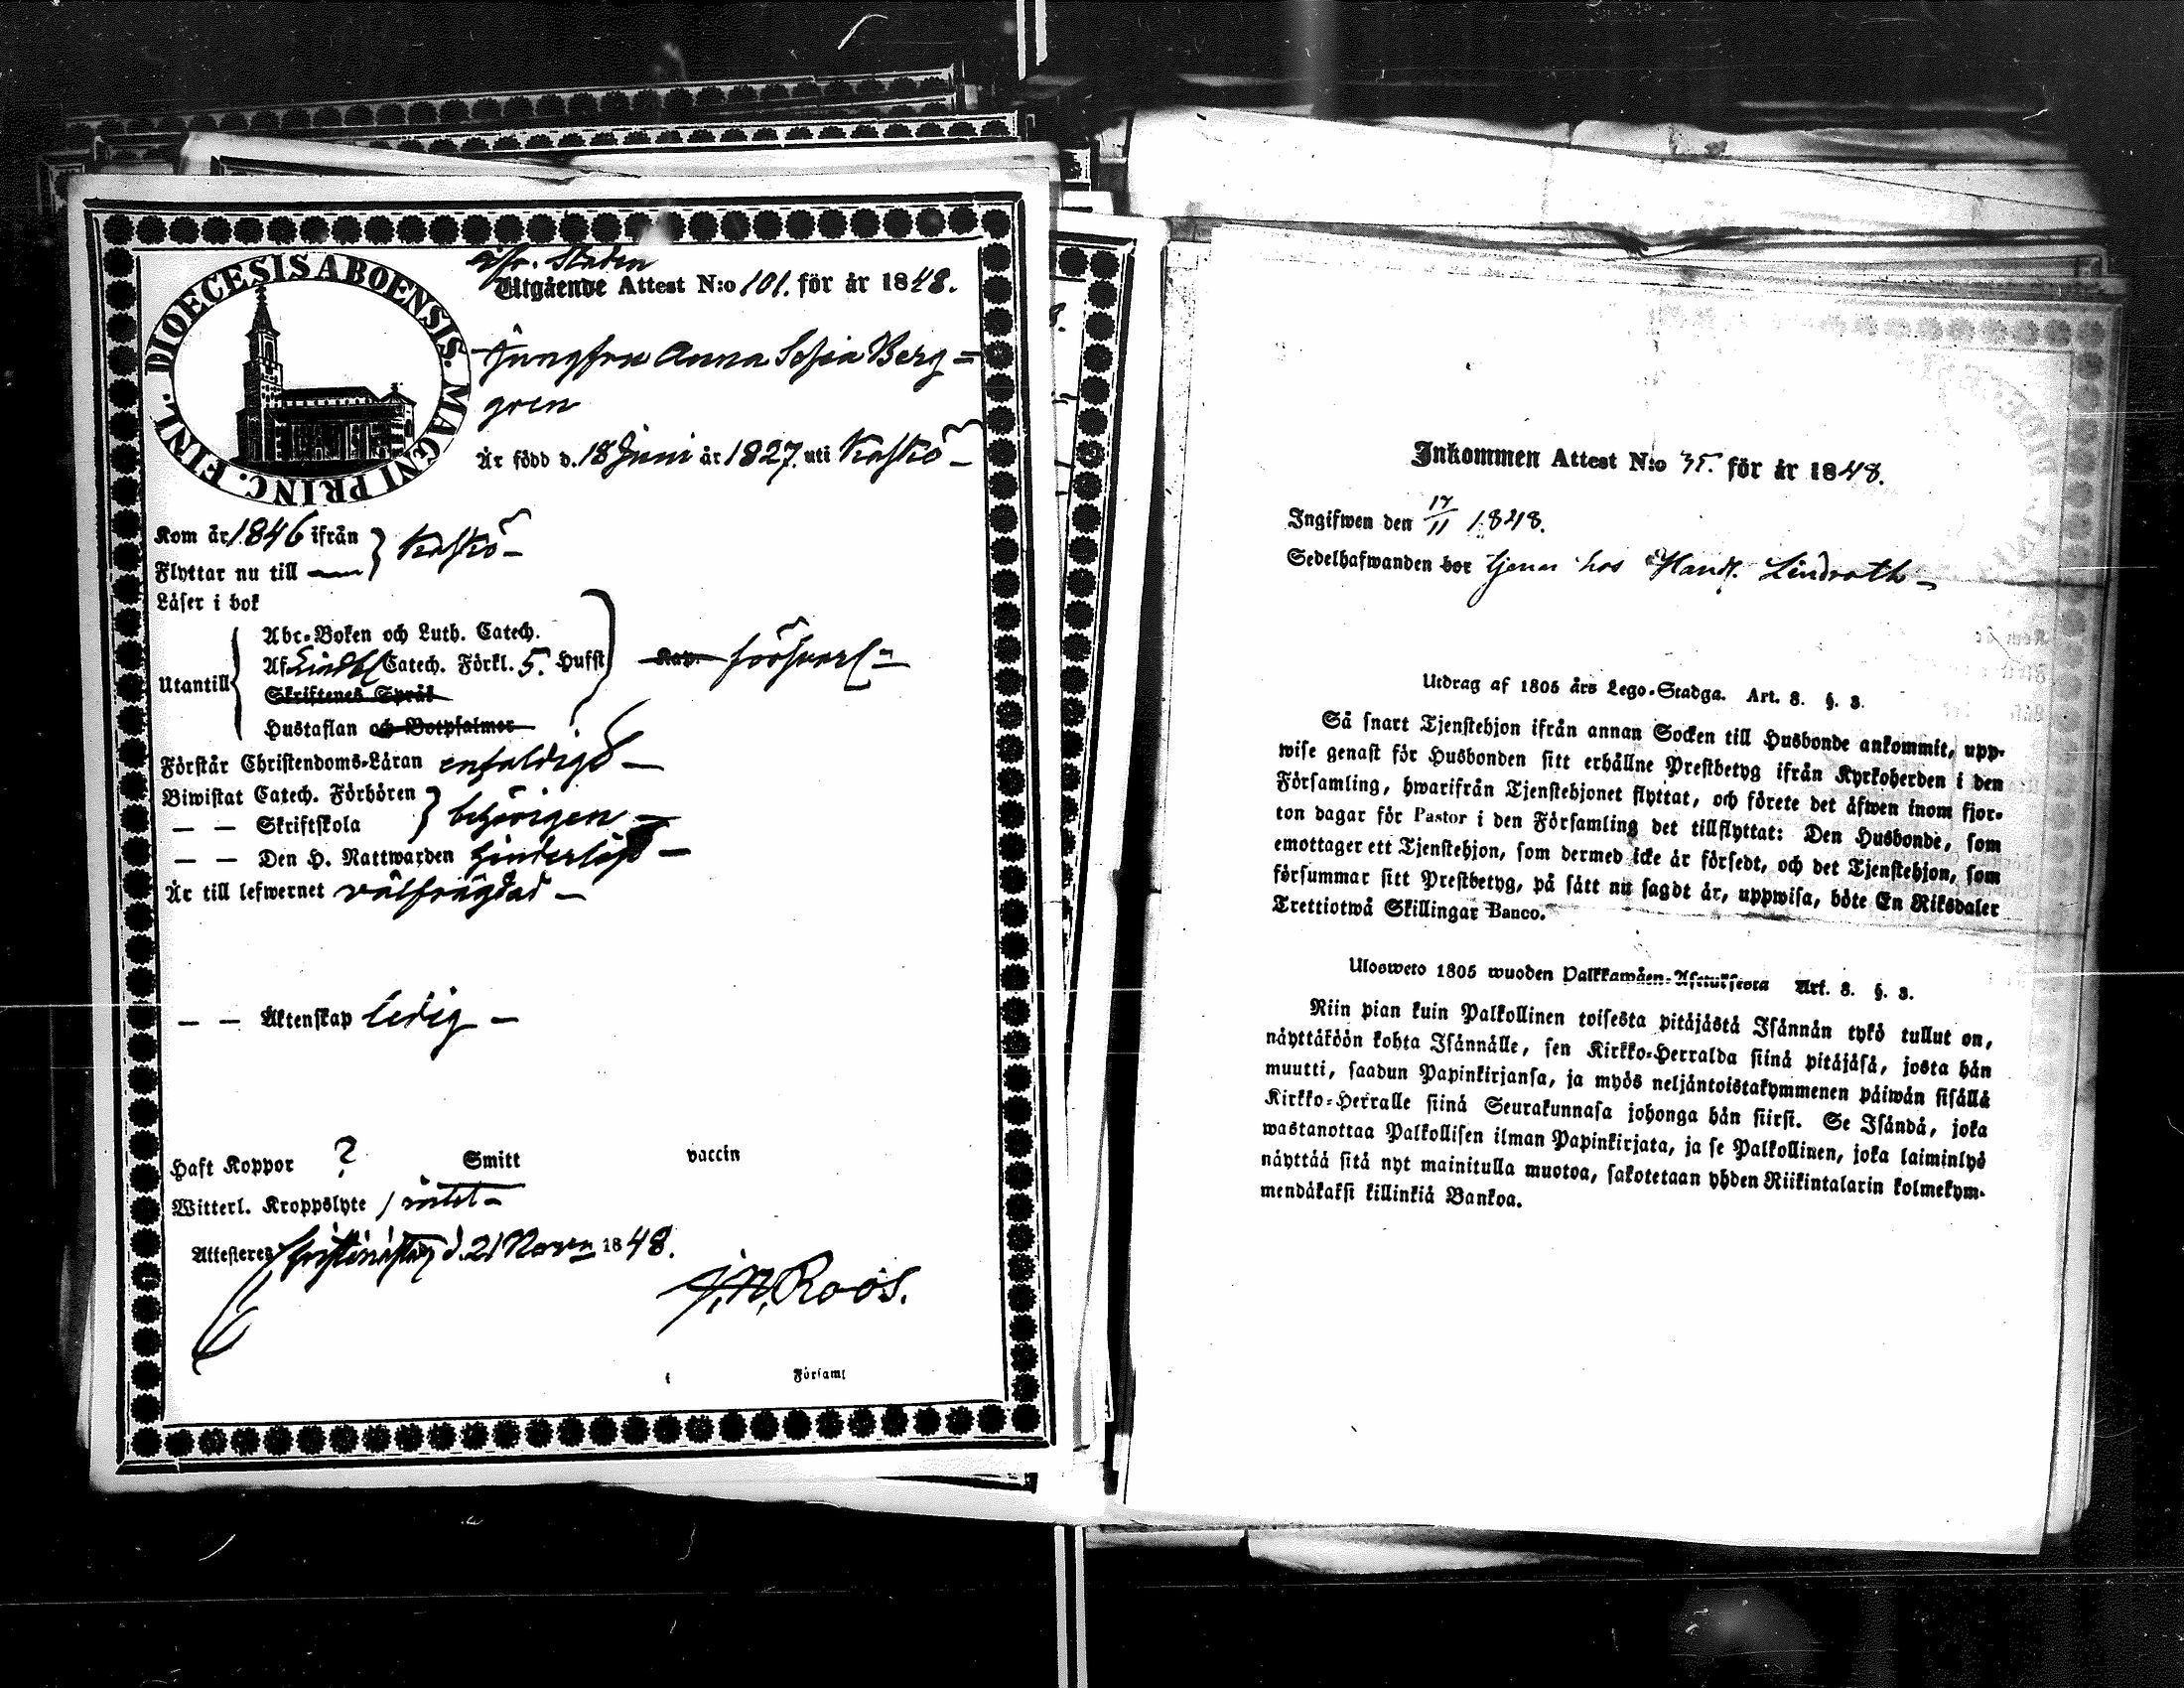 DIOECESIS ABOENSIS. MAGNI PRINC. FINL.
ifr. Staden
Utgående Attest N:o 101. för år 1848.
Jungfru Anna Sofia Berg=
gren
Är född d. 18 Juni år 1827. uti Kaskö
Kom år 1846 ifrån } Kaskö
Flyttar nu till
Läser i bok
Utantill
Abc-Boken och Luth. Catech.
Af Catech. Förkl. 5. Hufst
Kap. försvarl
Skriftenes Språk
Hustaflan och Botpsalmer
Förstår Christendoms-Läran enfaldigt
Biwistat Catech. Förhören } behörigen
— — Skriftskola
— — Den H. Nattwarden hinderlöst
Är till lefwernet välfrägdad
— — Äktenskap ledig
Haft Koppor ? Smitt vaccin
Witterl. Kroppslyte intet
Attesteres Christinestad d. 21 Novn 1848.
J. N. Roos.
i Församl
Inkommen Attest N:o 35. för år 1848.
Ingifwen den 17/11 1848.
Sedelhafwanden bor tjenar hos Handl. Lindroth
Utdrag af 1805 års Lego-Stadga. Art. 8. §. 3.
Så snart Tjenstehjon ifrån annan Socken till Husbonde ankommit, upp-
wise genast för Husbonden sitt erhållne Prestbetyg ifrån Kyrkoherden i den
Församling, hwarifrån Tjenstehjonet flyttat, och förete det äfwen inom fjor-
ton dagar för Pastor i den Församling det tillflyttat: Den Husbonde, som
emottager ett Tjenstehjon, som dermed icke är försedt, och det Tjenstehjon, som
försummar sitt Prestbetyg, på sätt nu sagdt är, uppwisa, böte En Riksdaler
Trettiotwå Skillingar Banco.
Ulosweto 1805 wuoden Palkkawäen-Asetuksesta Art. 8. §. 3.
Niin pian kuin Palkollinen toisesta pitäjästä Isännän tykö tullut on,
näyttäköön kohta Isännälle, sen Kirkko-Herralda siinä pitäjäsä, josta hän
muutti, saadun Papinkirjansa, ja myös neljäntoistakymmenen päiwän sisällä
Kirkko-Herralle siinä Seurakunnasa johonga hän siirsi. Se Isändä, joka
wastanottaa Palkollisen ilman Papinkirjata, ja se Palkollinen, joka laiminlyö
näyttää sitä nyt mainitulla muotoa, sakotetaan yhden Riikintalarin kolmekym-
mendäkaksi killinkiä Bankoa.